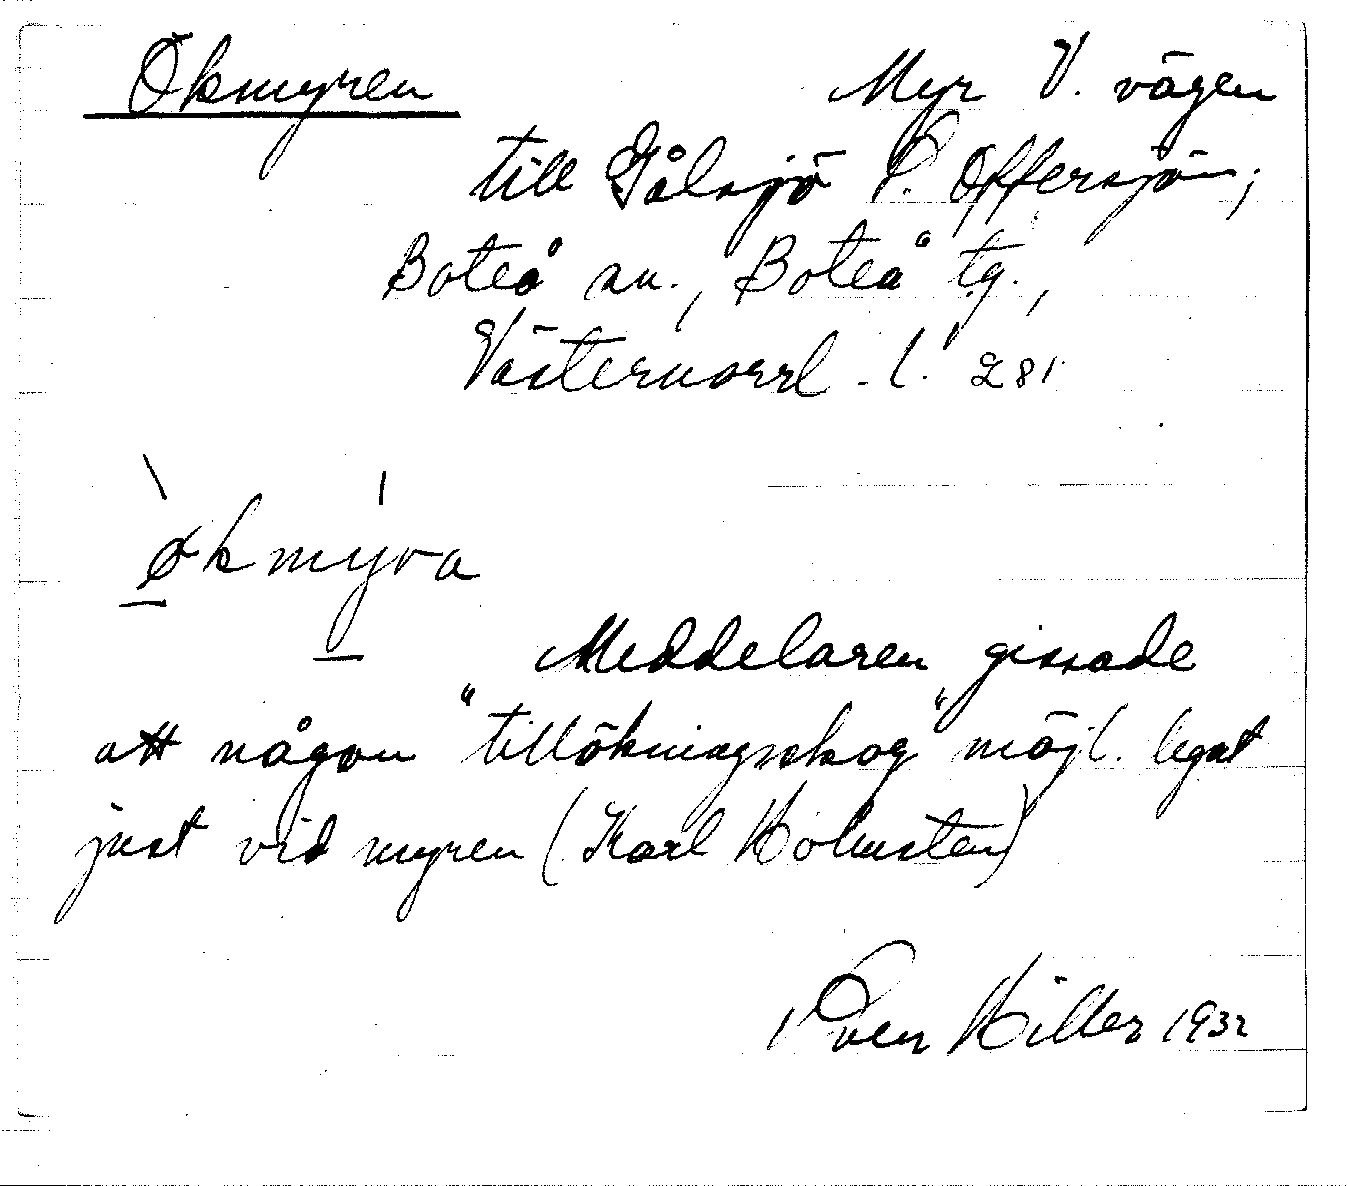 Ökmyren Myr V. vägen
till Gålsjö S. Offersjön;
Boteå sn., Boteå tg.,
Västernorrl. l. Z 81
økmyra
Meddelaren gissade
att någon "tillökningsskog" möjl. legat
just vid myren (Karl Holmsten)
Sven Hiller 1932